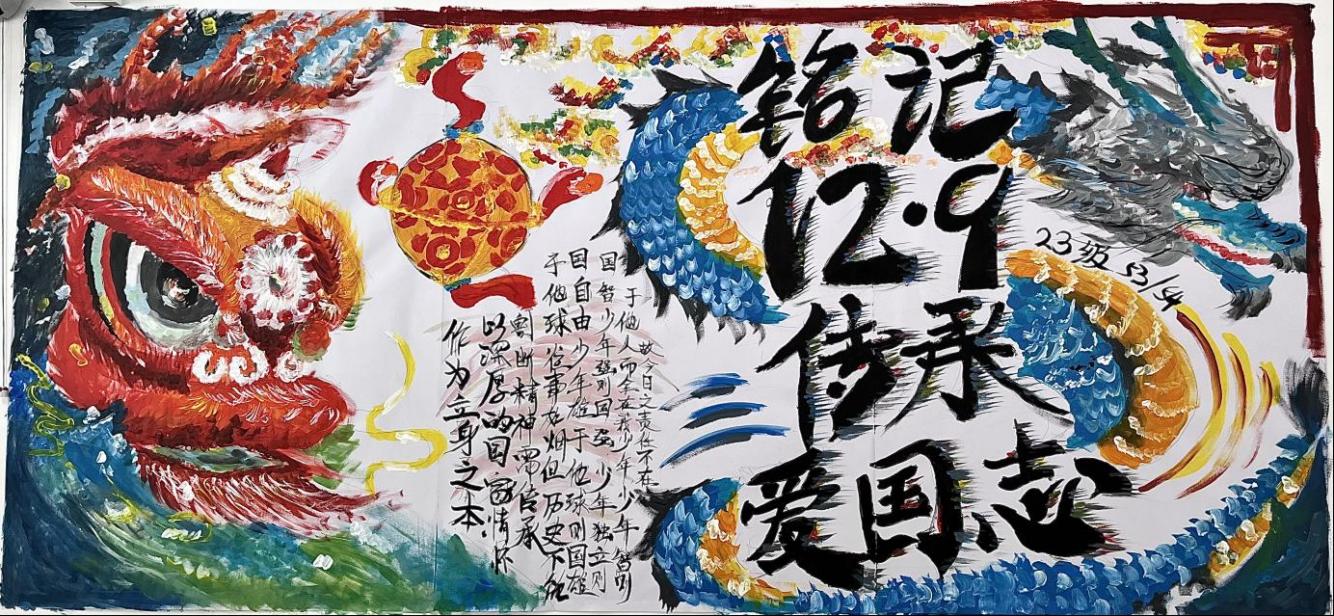 铭记
12.9
传承
爱国志
23级
故今日之责任不在
于他人而全在我少年少年智则
国智少年强则国强少年独立则
国自由少年雄于他球则国雄
于他球往事如烟但历史不能
割断精神需传承
以深厚的国家情怀
作为立身之本.